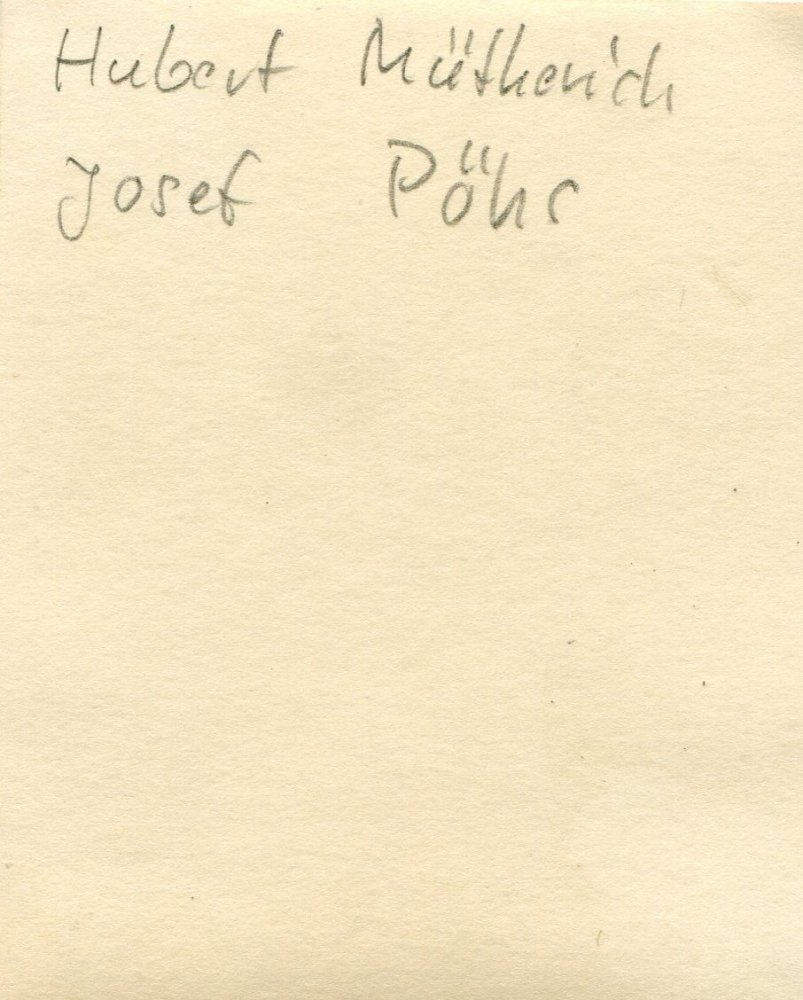 Hubert Mütherich
Josef Pöhr